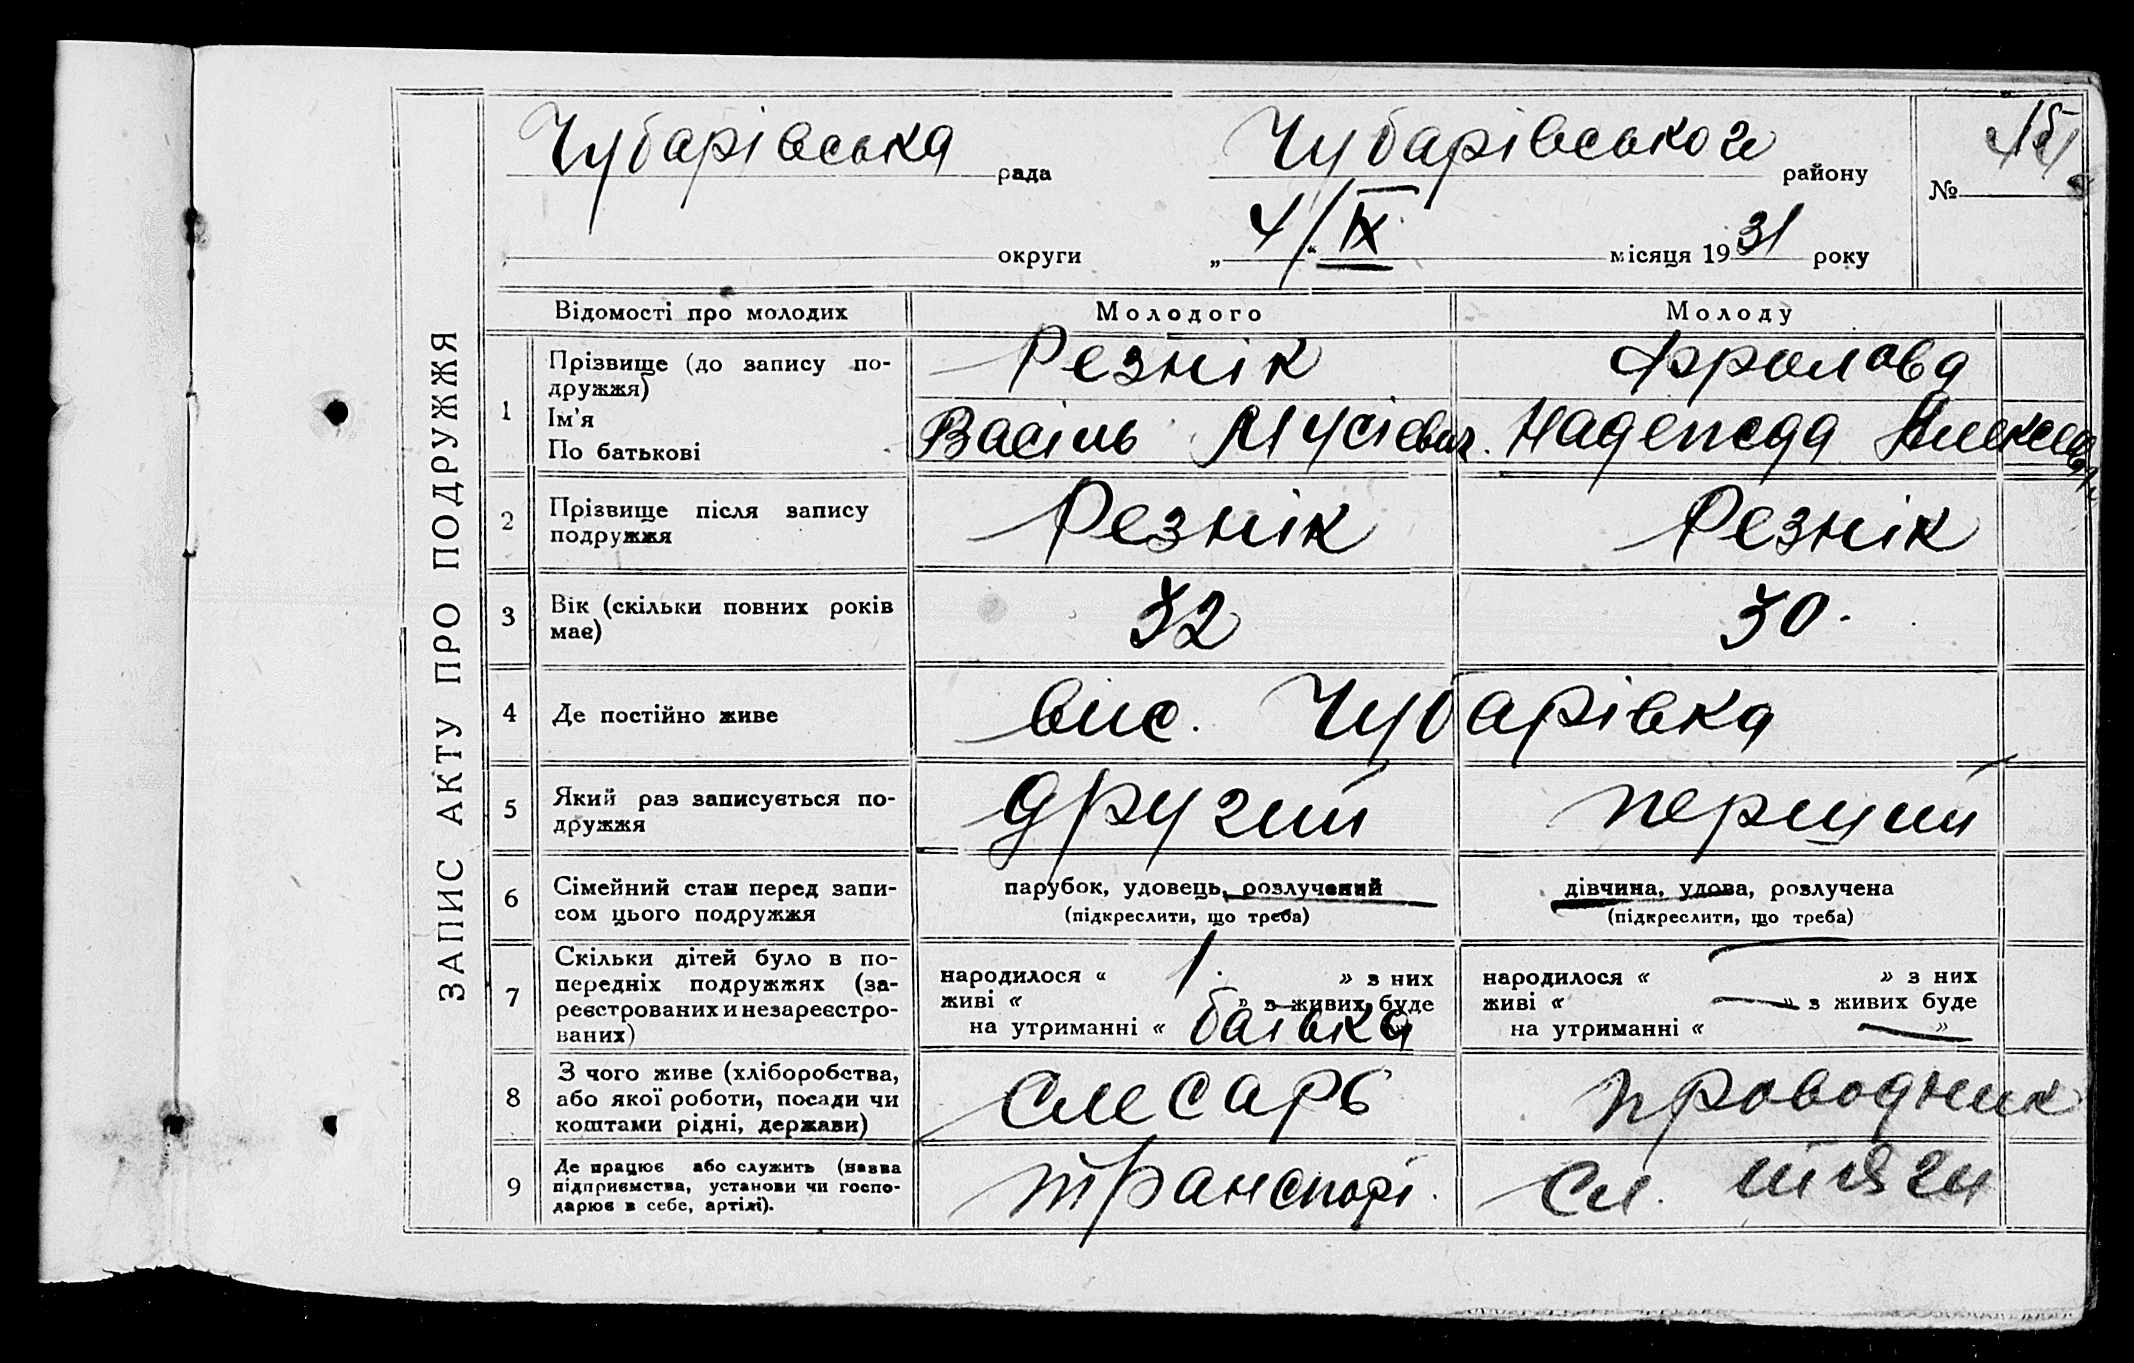 ЗАПИС АКТУ ПРО ПОДРУЖЖЯ
Чубарівська рада Чубарівського району №
округи „4/“ IX місяця 1931 року
Відомості про молодих Молодого Молоду
1 Прізвище (до запису по- Резнік Фролова
дружжя)
Ім’я Васіль Мусієвич. Надежда Алексеев
По батькові
2 Прізвище після запису Резнік Резнік
подружжя
3 Вік (скільки повних років 32 30.
має)
4 Де постійно живе вис. Чубарівка
5 Який раз записується по- другий перший
дружжя
6 Сімейний стан перед запи- парубок, удовець, розлучений дівчина, удова, розлучена
сом цього подружжя (підкреслити, що треба) (підкреслити, що треба)
7 Скільки дітей було в по- народилося « 1. » з них народилося « — » з них
передніх подружжях (за- живі « » з живих буде живі « — » з живих буде
реєстрованих и незареєстро- на утриманні « батька на утриманні « — »
ваних)
8 З чого живе (хліборобства, Слесарь проводник
або якої роботи, посади чи
коштами рідні, держави)
9 Де працює або служить (назва Транспорі. Сл. тяги
підприємства, установи чи госпо-
дарює в себе, артілі).